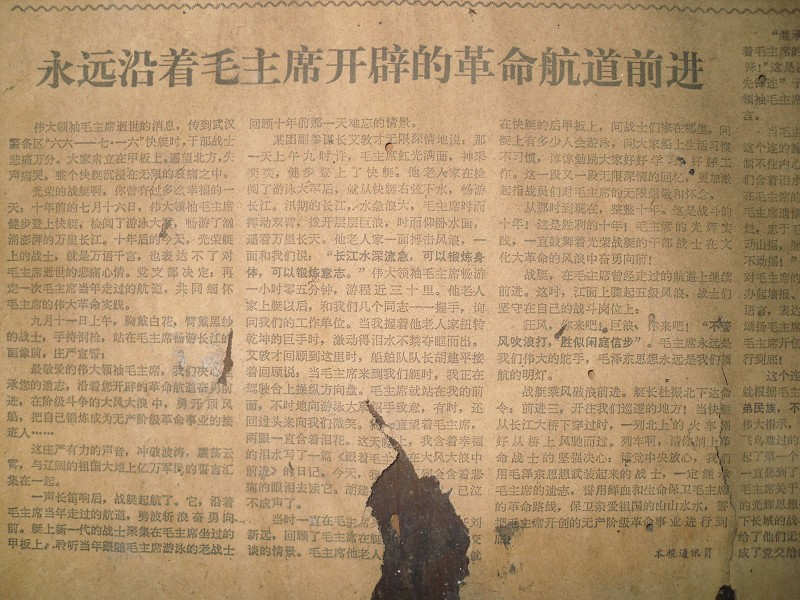 永远沿着毛主席开辟的革命航道前进
伟大领袖毛主席逝世的消息，传到武汉
警备区“六六——七·一六”快艇时，干部战士
悲痛万分。大家肃立在甲板上，遥望北方，失
声痛哭。整个快艇沉浸在无限的哀痛之中。
光荣的战艇啊，你曾有过多么幸福的一
天：十年前的七月十六日，伟大领袖毛主席
健步登上快艇，检阅了游泳大军，畅游了汹
涌澎湃的万里长江。十年后的今天，光荣艇
上的战士，就是万语千言，也表达不了对
毛主席逝世的悲痛心情。党支部决定：再
走一次毛主席当年走过的航道，共同缅怀
毛主席的伟大革命实践。
九月十一日上午，胸戴白花，臂戴黑纱
的战士，手持钢枪，站在毛主席畅游长江的
画像前，庄严宣誓：
最敬爱的伟大领袖毛主席，我们决心
承您的遗志，沿着您开辟的革命航道奋勇前
进，在阶级斗争的大风大浪中，勇开顶风
船，把自己锻炼成为无产阶级革命事业的接
班人……
这庄严有力的声音，冲破波涛，震荡云
霄，与辽阔的祖国大地上亿万军民的誓言汇
集在一起。
一声长笛响后，战艇起航了。它，沿着
毛主席当年走过的航道，劈波斩浪奋勇向
前。艇上新一代的战士聚集在毛主席坐过的
甲板上，聆听当年跟随毛主席游泳的老战士
回顾十年前那一天难忘的情景。
某团副参谋长艾教才无限深情地说，那
一天上午九时许，毛主席红光满面，神采
奕奕，健步登上了快艇。他老人家在检
阅了游泳大军后，就从快艇右弦下水，畅游
长江。汛期的长江，水急浪大，毛主席时而
挥动双臂，拨开层层巨浪，时而仰卧水面，
遥看万里长天。他老人家一面搏击风浪，一
面和我们说：“长江水深流急，可以锻炼身
体，可以锻炼意志。”伟大领袖毛主席畅游
一小时零五分钟，游程近三十里。他老人
家上艇以后，和我们几个同志一一握手，询
问我们的工作单位。当我握着他老人家扭转
乾坤的巨手时，激动得泪水不禁夺眶而出。
艾教才回顾到这里时，船舶队队长胡建平接
着回顾说。当毛主席来到我们艇时，我正在
驾驶台上操纵方向盘。毛主席就站在我的前
面，不时地向游泳大军招手致意，有时，还
回过头来向我们微笑。我一直望着毛主席，
两眼一直含着泪花。这天晚上，我含着幸福
的泪水写了一篇《跟着毛主席在大风大浪中
前进》的日记。今天，我 到会含着悲
痛的眼泪去读它。胡建 ，已泣
不成声了。
当时一直在毛主席 任刘
新远，回顾了毛主席在艇 交
谈的情景。毛主席他老人家 就
在快艇的后甲板上，问战士们家在哪里，问
艇上有多少人会游泳，问大家船上生活习惯
不习惯，谆谆勉励大家好好学习，好好工
作。这一段又一段无限深情的回忆，更加激
起指战员们对毛主席的无限崇敬和怀念。
从那时到现在，整整十年。这是战斗的
十年！这是胜利的十年！毛主席的光辉实
践，一直鼓舞着光荣战艇的干部战士在文
化大革命的风浪中奋勇向前！
战艇，在毛主席曾经走过的航道上继续
前进。这时，江面上骤起五级风浪，战士们
坚守在自己的战斗岗位上：
狂风，你来吧！巨浪，你来吧！“不管
风吹浪打，胜似闲庭信步”。毛主席永远是
我们伟大的舵手，毛泽东思想永远是我们领
航的明灯。
战艇乘风破浪前进。艇长杜振北下达命
令：前进三，开往我们巡逻的地方！当快艇
从长江大桥下穿过时，一列北上的火车刚
好从桥上风驰而过。列车啊，请你捎上革
命战士的坚强决心：请党中央放心，我们
用毛泽东思想武装起来的战士，一定继承
毛主席的遗志，誓用鲜血和生命保卫毛主席
的革命路线，保卫亲爱祖国的山山水水，誓
把毛主席开创的无产阶级革命事业进行到
底！
本报通讯员
“继承
着毛主席的
誓！”这是
先锋连”干
领袖毛主席
言。
当毛主
这个连的
制不住内心
们含着泪水
在毛主席
毛主席遗像
烈，忠于毛
动山摇，
不动摇！”
对毛主席的
办起墙报、
语言，表达
颂扬毛主席
毛主席开创
行到底！
这个连
就根据毛主
弟民族，不
伟大指示，
飞鸟难过的
起了第一个
一直使到了
毛主席关于
的光辉思想
下长城的战
给了他们艰
成了党交给